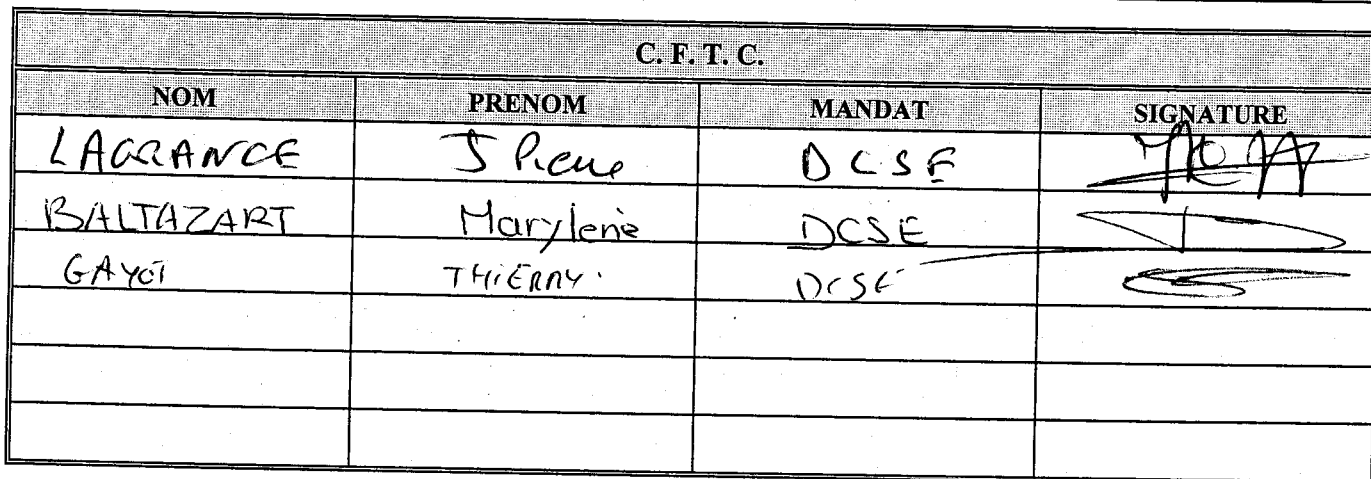 C. F. T. C.
NOM PRENOM MANDAT SIGNATURE
LAGRANGE J Pierre DCSE
BALTAZART Marylene DCSE
GAYOT THIERRY DCSE